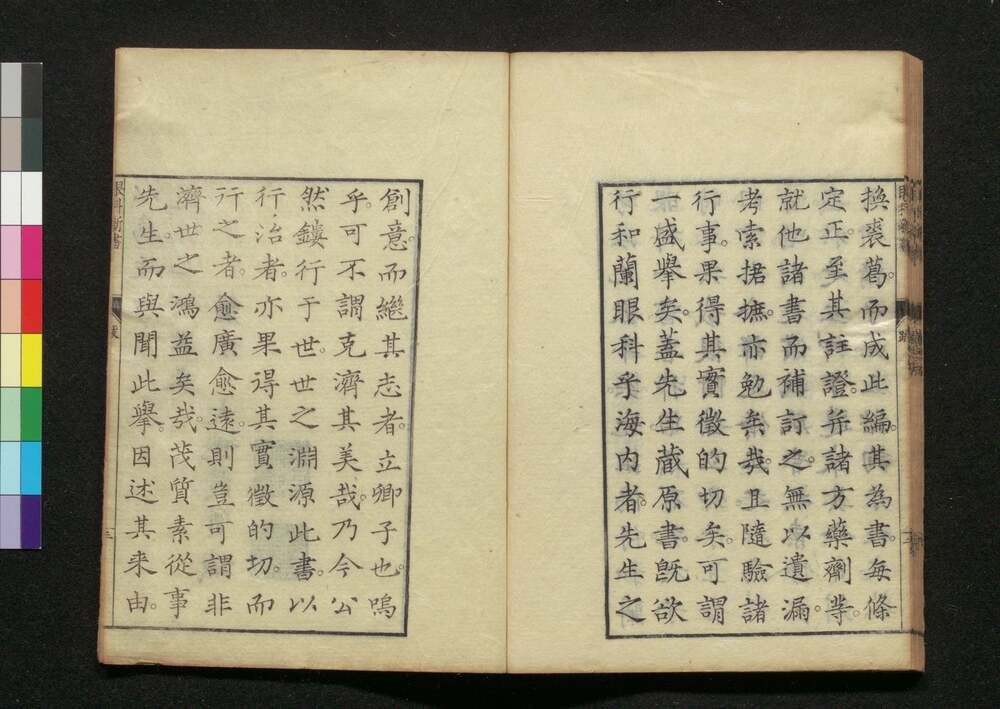 換裘葛。而成此編。其為書。每條
定正。至其註證。并諸方藥劑等。
就他諸書而補訂之。無以遺漏
考索捃摭。亦勉矣哉。且隨驗諸
行事。果得其實徵的切矣。可謂
一盛擧矣。蓋先生蔵原書。既欲
行和蘭眼科乎海内者。先生之
創意。而繼其志者。立卿子也。嗚
乎。可不謂克濟其美哉。乃今公
然鏤行于世。世之淵源此書。以
行治者。亦果得其實徴的切。而
行之者。愈廣愈遠。則豈可謂非
濟世之鴻益矣哉。茂質素從事
先生。而與聞此擧。因述其来由。
眼科新書